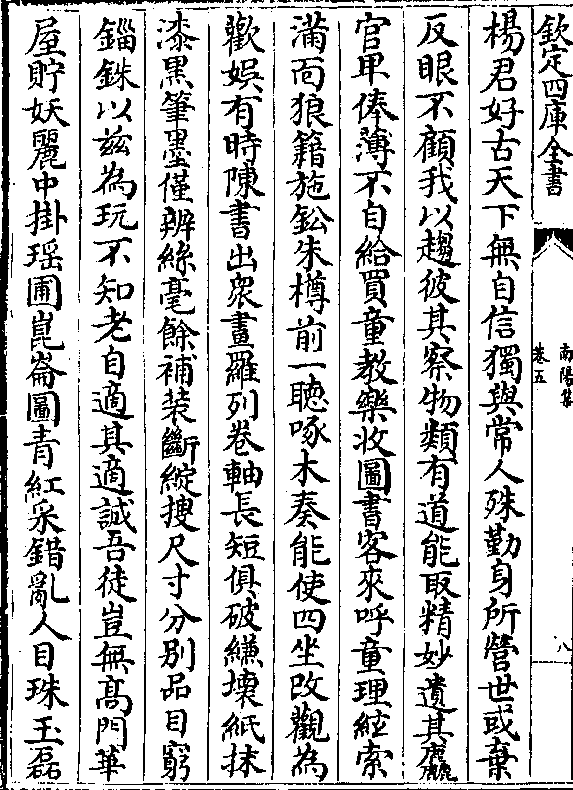 欽定四庫全書
南陽集
卷五
八
楊君好古天下無自信獨與常人殊勤身所營世或棄
反眼不顧我以趨彼其察物類有道能取精妙遺其麤
官卑俸薄不自給買童教樂收圖書客來呼童理絃索
滿面狼籍施鉛朱樽前一聽啄木奏能使四坐改觀為
歡娛有時陳書出衆畫羅列卷軸長短俱破縑壞紙抹
漆黒筆墨僅辨絲毫餘補装斷綻搜尺寸分别品目窮
錙銖以兹為玩不知老自適其適誠吾徒豈無髙門華
屋貯妖麗中掛瑶圃崑崙圖青紅采錯亂人目珠玉磊